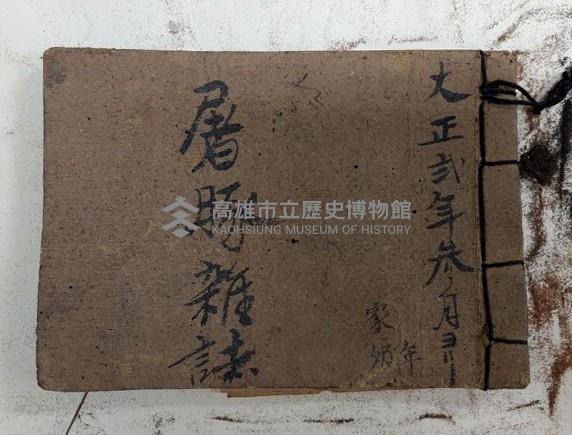 大正弍年參月ヨリ
屠豚雜誌
家
年
高雄市立歷史博物館
KAOHSIUNG MUSEUM OF HISTORY